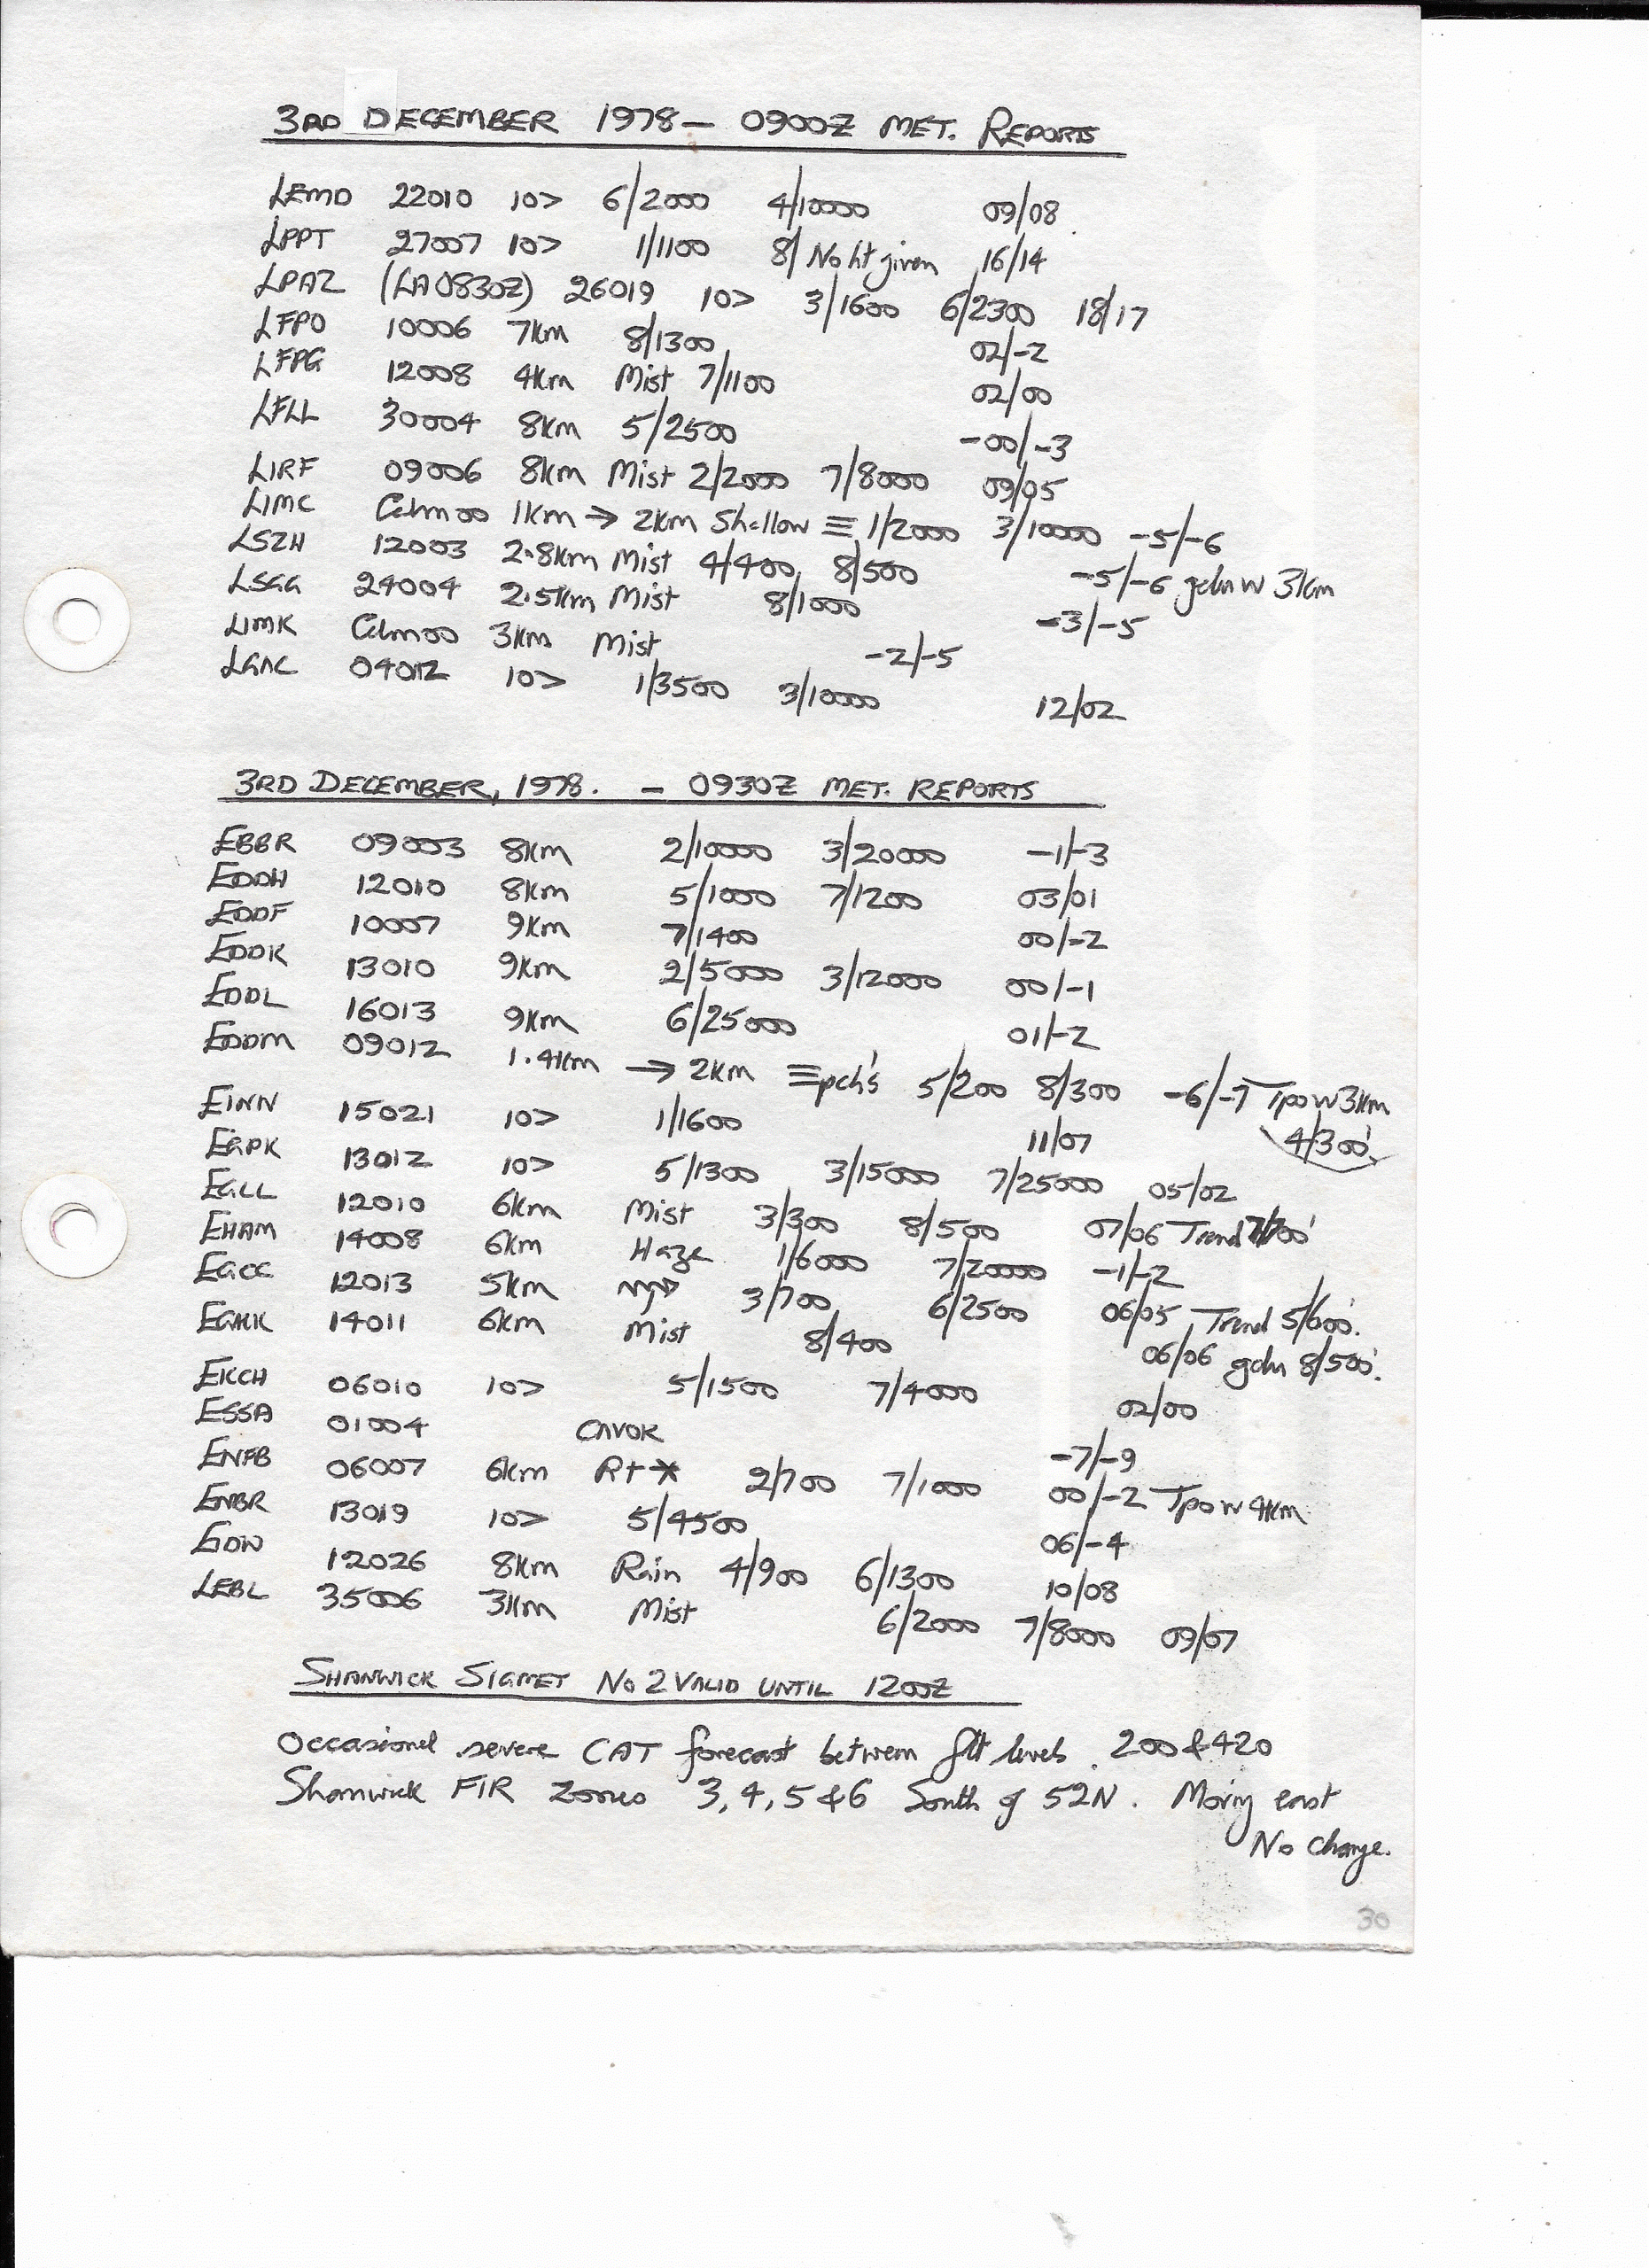 3RD DECEMBER 1978 — 0900Z MET. REPORTS
LEMD 22010 10> 6/2000 4/10000 09/08
LPPT 27007 10> 1/1100 8/ No ht given 16/14
LPAZ (LA0830Z) 26019 10> 3/1600 6/2300 18/17
LFPO 10006 7km 8/1300 02/-2
LFPG 12008 4km Mist 7/1100 02/00
LFLL 30004 8km 5/2500 -00/-3
LIRF 09006 8km Mist 2/2000 7/8000 09/05
LIMC Calm00 1km → 2km Shallow ≡ 1/2000 3/10000 -5/-6
LSZH 12003 2.8km Mist 4/400 8/500 -5/-6 gdu w 3km
LSGG 24004 2.5km Mist 8/1000 -3/-5
LIMK Calm00 3km Mist -2/-5
LGAC 04012 10> 1/3500 3/10000 12/02
3RD DECEMBER, 1978. — 0930Z MET. REPORTS
EBBR 09003 8km 2/10000 3/20000 -1/-3
EDDH 12010 8km 5/1000 7/1200 03/01
EDDF 10007 9km 7/1400 00/-2
EDDK 13010 9km 2/5000 3/12000 00/-1
EDDL 16013 9km 6/25000 01/-2
EDDM 09012 1.4km → 2km ≡pch's 5/200 8/300 -6/-7 Tpo w 3km
4/300'
EINN 15021 10> 1/1600 11/07
EGPK 13012 10> 5/1300 3/15000 7/25000 05/02
EGLL 12010 6km Mist 3/300 8/500 07/06 Trend 7/700'
EHAM 14008 6km Haze 1/6000 7/20000 -1/-2
EGCC 12013 5km 3/700 6/2500 06/05 Trend 5/600'.
EGKK 14011 6km Mist 8/400 06/06 gdu 8/500'.
EKCH 06010 10> 5/1500 7/4000 02/00
ESSA 01004 CAVOK -7/-9
ENFB 06007 6km R+* 2/700 7/1000 00/-2 Tpo w 4km
ENBR 13019 10> 5/4500 06/-4
EIDW 12026 8km Rain 4/900 6/1300 10/08
LEBL 35006 3km Mist 6/2000 7/8000 09/07
SHANWICK SIGMET No 2 VALID UNTIL 1200Z
Occasional severe CAT forecast between flt levels 200 & 420
Shanwick FIR Zones 3, 4, 5 & 6 South of 52N. Moving east
No change.
30